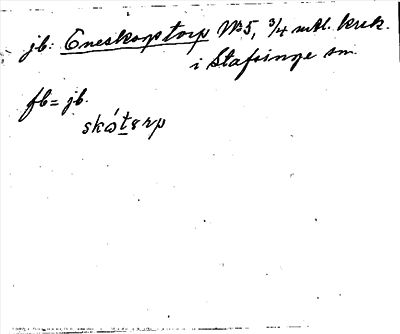 jb: Eneskogstorp № 5, 3/4 mtl. krck.
i Stafsinge sn.
fb = jb.
skó̀tærp